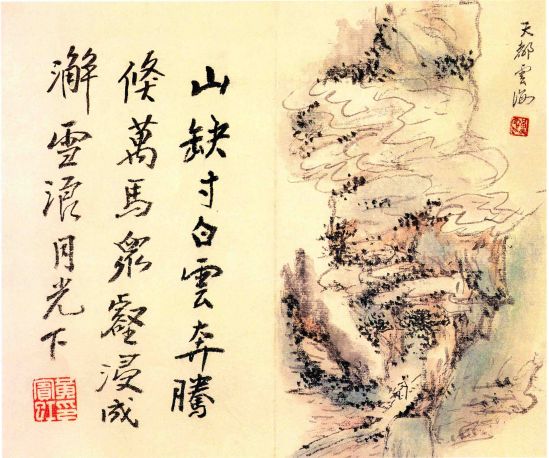 天都雲海
山缺寸白雲奔騰
倏萬馬眾壑浸成
澥雪浪月光下